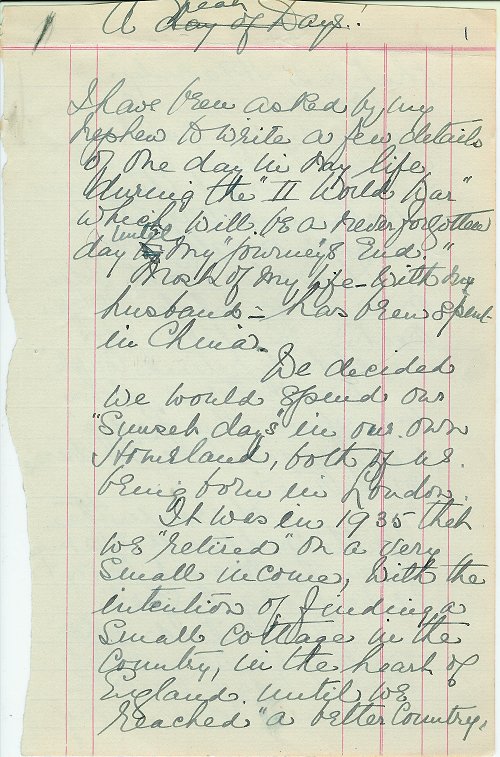 A day of Days. 1
I have been asked by my
nephew to write a few details
of one day in my life
during the "II World War"
which will be a never forgotten
day until my "journey's End."
Most of my life – with my
husband – has been spent
in China.
We decided
we would spend our
"Sunset days" in our own
Homeland, both of us
being born in London.
It was in 1935 that
we "retired" on a very
small income, with the
intention of finding a
small cottage in the
country, in the heart of
England until we
reached "a better Country,